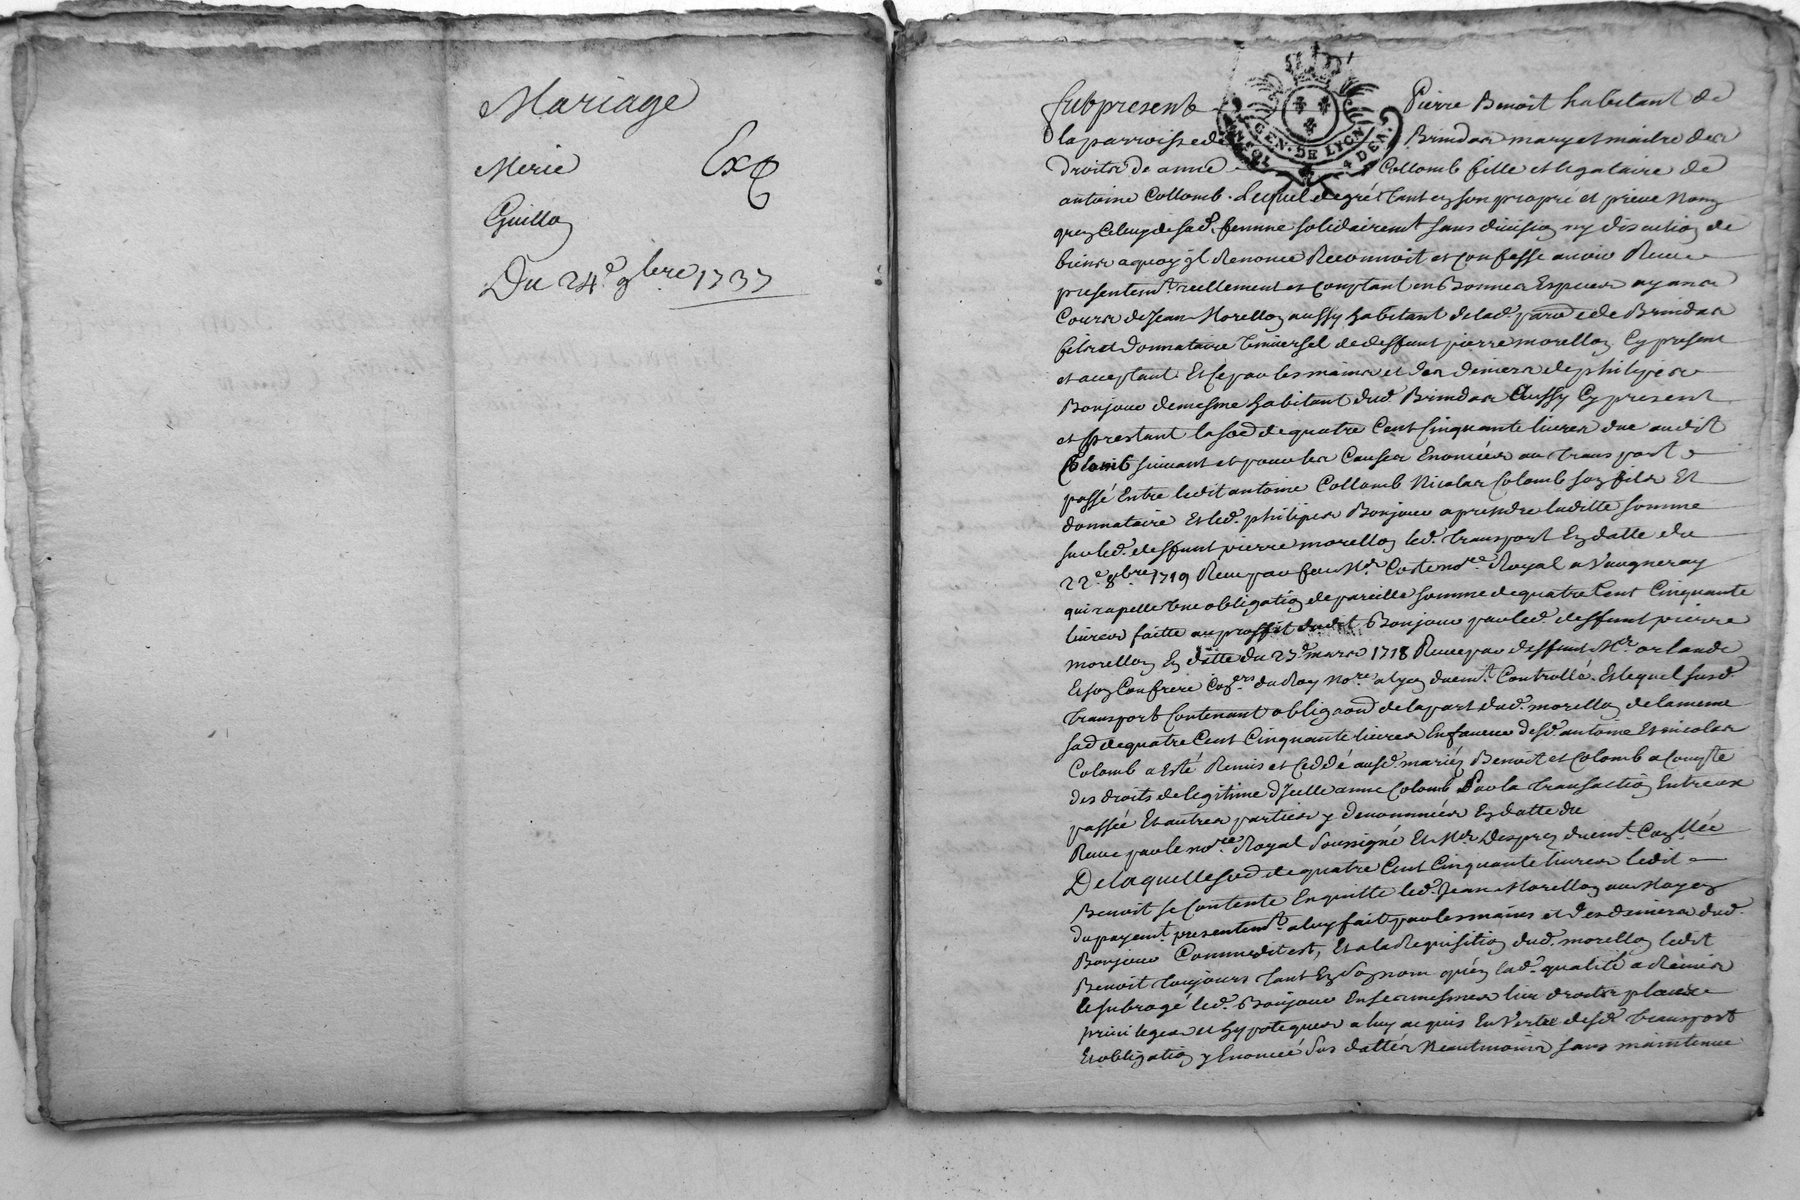 Mariage
Merie Exp
Guillon
Du 24e 9bre 1737
GEN. DE LYON
4 DEN.
fut present Pierre Benoit habitant de
la parroisse de Brindas mary et maitre des
droits de anne Collomb fille et legataire de
antoine Collomb. Lequel de gré tant en son propre et privé nom
qu'en celuy de sad. femme solidairemt sans division ny discution de
biens a quoy il renonce Reconnoit et confesse avoir Receu
presentemt reellement et comptant en Bonnes Especes ayans
Cours de Jean Morellon aussy habitant de lad. parroisse de Brindas
fils et donnataire Universel de deffunt pierre morellon Cy present
et acceptant Et ce par les mains et des deniers de philipes
Bonjour demesme habitant dud. Brindas Aussy Cy present
et prestant la som de quatre Cent Cinquante livres due audit
Colomb suivant et pour les Causes Enoncées au transport
passé Entre ledit antoine Collomb Nicolas Colomb son fils Et
donnataire Et led. philipes Bonjour a prendre laditte somme
sur led. deffunt pierre morellon led. transport En datte du
22e 8bre 1719 Receu par feu Me Coste nore Royal a Vaugneray
qui rapelle Une obligation de pareille somme de quatre Cent Cinquante
livres faitte au proffit dudit Bonjour par led. deffunt pierre
morellon En datte du 27e mars 1718 Receu par deffunt Me orlande
Et son Confrere Coners du Roy nores a lyon duemt Controllé. Et lequel susd.
transport Contenant obligaon de la part dud. morellon de la meme
som de quatre Cent Cinquante livres En faveur desd. antoine Et nicolas
Colomb a Esté Remis et Ceddé ausd. mariés Benoit et Colomb a Compte
des droits de legitime d'Icelle anne Colomb Par la transaction Entreux
passée Et autres parties y denommées En datte du
Receu par le nore Royal soussigné Et Me Desprez duemt Conllée
De laquelle som de quatre Cent Cinquante livres ledit
Benoit se Contente En quitte led. Jean Morellon au Moyen
du payemt presentemt a luy fait par les mains et des deniers dud.
Bonjour Comme dit est, Et a la Requisition dud. morellon ledit
Benoit toujours tant En son nom qu'en lad. qualité a Remis
et subrogé led. Bonjour En ses mesmes lieu droits place
privileges et hypoteques a luy acquis En Vertu desd. transport
Et obligation y Enoncée Sus dattés Neantmoins sans maintenue